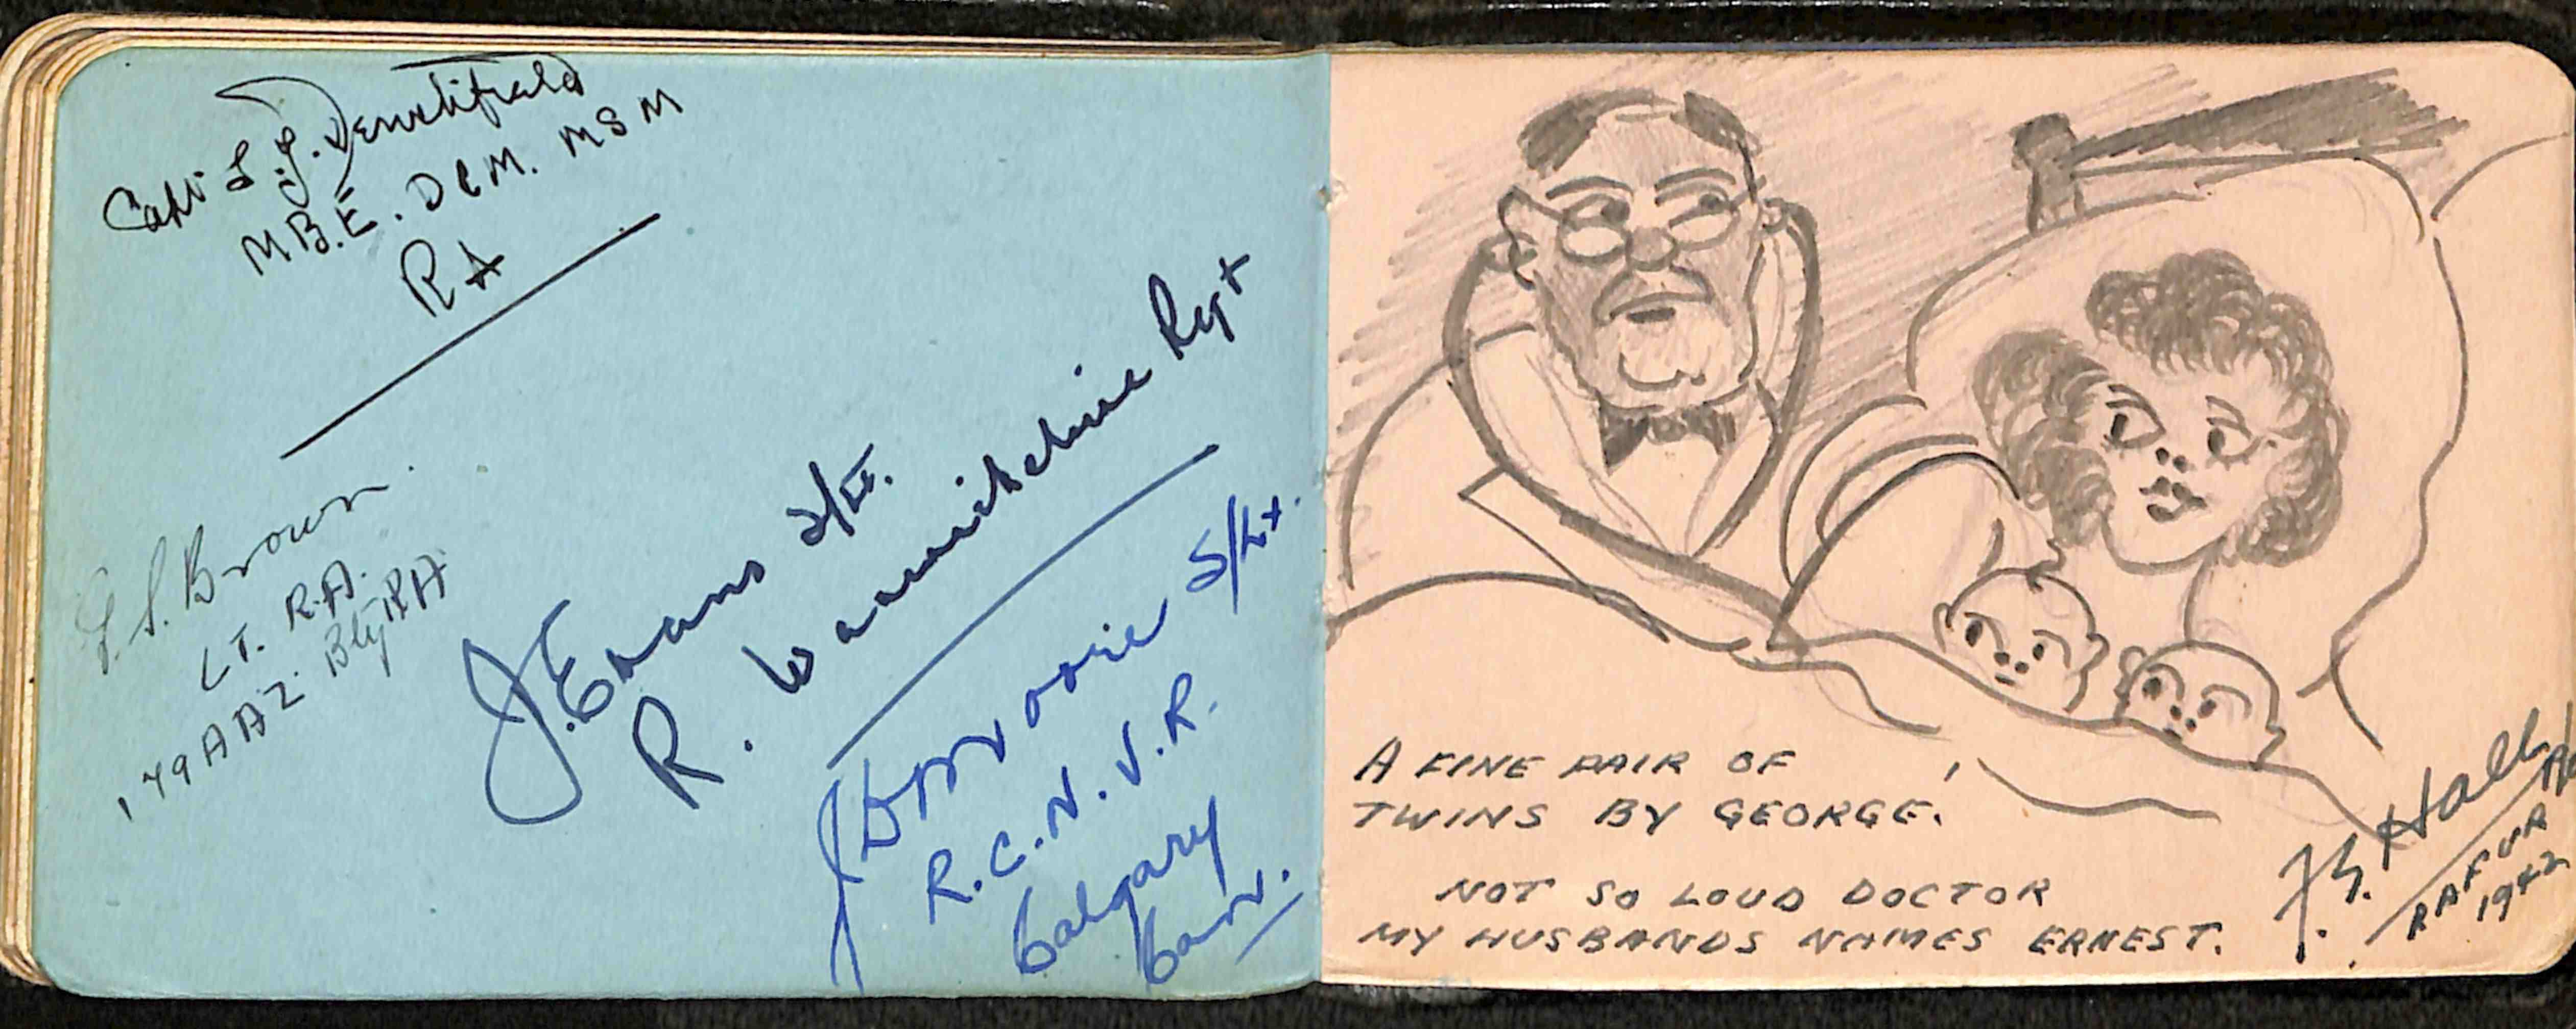 Capt S.J.
M.B.E. D.C.M. M S M
R A
G.S. Brown.
LT. R.A.
179 A A Z. Bty RA
J. Evans 2/Lt.
R. Warwickshire Regt
S/Lt.
R.C.N.V.R.
Calgary
Can.
A FINE PAIR OF
TWINS BY GEORGE.
NOT SO LOUD DOCTOR
MY HUSBANDS NAMES ERNEST.
Hall
RAFVR
1942